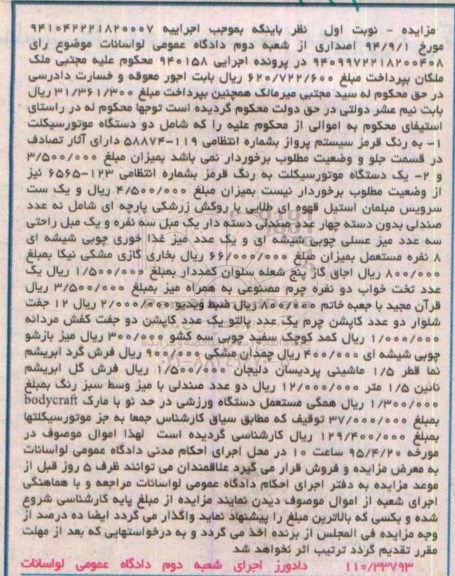 مزایده - نوبت اول نظر باینکه بموجب اجراییه ۹۴۱۰۴۲۲۲۱۸۲۰۰۰۷
مورخ ۹۴/۹/۱ اصداری از شعبه دوم دادگاه عمومی لواسانات موضوع رای
۹۴۰۹۹۷۲۲۱۸۲۰۰۴۰۸ در پرونده اجرایی ۹۴۰۱۵۸ محکوم علیه مجتبی ملک
ملکان بپرداخت مبلغ ۶۲۰/۷۲۲/۶۰۰ ریال بابت اجور معوقه و خسارت دادرسی
در حق محکوم له سید مجتبی میرمالک همچنین بپرداخت مبلغ ۳۱/۳۶۱/۳۰۰ ریال
بابت نیم عشر دولتی در حق دولت محکوم گردیده است توجها محکوم له در راستای
استیفای محکوم به اموالی از محکوم علیه را که شامل دو دستگاه موتورسیکلت
۱- به رنگ قرمز سیستم پرواز بشماره انتظامی ۱۱۹-۵۸۸۷۴ دارای آثار تصادف
در قسمت جلو و وضعیت مطلوب برخوردار نمی باشد بمیزان مبلغ ۳/۵۰۰/۰۰۰
و ۲- یک دستگاه موتورسیکلت به رنگ قرمز بشماره انتظامی ۱۲۳-۶۵۶۵ نیز
از وضعیت مطلوب برخوردار نیست بمیزان مبلغ ۴/۵۰۰/۰۰۰ ریال و یک ست
سرویس مبلمان استیل قهوه ای طلایی با روکش زرشکی پارچه ای شامل نه عدد
صندلی بدون دسته چهار عدد صندلی دسته دار یک مبل سه نفره و یک مبل راحتی
سه عدد میز عسلی چوبی شیشه ای و یک عدد میز غذا خوری چوبی شیشه ای
۸ نفره مستعمل بمیزان مبلغ ۶۶/۰۰۰/۰۰۰ ریال بخاری گازی مشکی نیکا بمبلغ
۸۰۰/۰۰۰ ریال اجاق گاز پنج شعله سلوان کمددار بمبلغ ۱/۵۰۰/۰۰۰ ریال یک
عدد تخت خواب دو نفره چرم مصنوعی به همراه میز بمبلغ ۳/۵۰۰/۰۰۰ ریال
قرآن مجید با جعبه خاتم ۸۰۰/۰۰۰ ریال ضبط ویدیو ۲/۰۰۰/۰۰۰ ریال ۱۲ جفت
شلوار دو عدد کاپشن چرم یک عدد پالتو یک عدد کاپشن دو جفت کفش مردانه
۱/۰۰۰/۰۰۰ ریال کمد کوچک سفید چوبی سه کشو ۳۰۰/۰۰۰ ریال میز بازشو
چوبی شیشه ای ۴۰۰/۰۰۰ ریال چمدان مشکی ۹۰۰/۰۰۰ ریال فرش گرد ابریشم
نما قطر ۱/۵ ماشینی پردیسان دلیجان ۱/۵۰۰/۰۰۰ ریال فرش گل ابریشم
نائین ۱/۵ متر ۱۲/۰۰۰/۰۰۰ ریال دو عدد صندلی با میز وسط سبز رنگ بمبلغ
۱/۳۰۰/۰۰۰ ریال همگی مستعمل دستگاه ورزشی در حد نو با مارک bodycraft
بمبلغ ۳۷/۰۰۰/۰۰۰ توقیف که مطابق سیاق کارشناس جمعا به جز موتورسیکلتها
بمبلغ ۱۲۹/۴۰۰/۰۰۰ ریال کارشناسی گردیده است لهذا اموال موصوف در
مورخه ۹۵/۴/۲۰ ساعت ۱۰ در محل اجرای احکام مدنی دادگاه عمومی لواسانات
به معرض مزایده و فروش قرار می گیرد علاقمندان می توانند ظرف ۵ روز قبل از
موعد مزایده به دفتر اجرای احکام دادگاه عمومی لواسانات مراجعه و با هماهنگی
اجرای شعبه از اموال موصوف دیدن نمایند مزایده از مبلغ پایه کارشناسی شروع
شده و بکسی که بالاترین مبلغ را پیشنهاد نماید واگذار می گردد ایضا ده درصد از
وجه مزایده فی المجلس از برنده اخذ می گردد و به درخواستهایی که بعد از مهلت
مقرر تقدیم گردد ترتیب اثر نخواهد شد
۱۱۰/۳۳۷۹۳ دادورز اجرای شعبه دوم دادگاه عمومی لواسانات